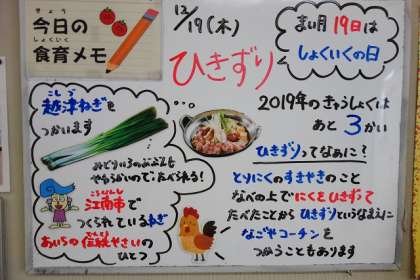 きょう
今日の
しょくいく
食育メモ
12/19(木)
まい月19日は
しょくいくの日
ひきずり
こしづ
越津ねぎを
つかいます
みどりいろのぶぶんも
やわらかいので たべられる!
こうなんし
江南市で
つくられているねぎ
でんとう
あいちの伝統やさいの
ひとつ
2019年のきゅうしょくは
あと3かい
ひきずりってなぁに?
とりにくのすきやきのこと
なべの上でにくをひきずって
たべたことからひきずりというなまえに
なごやコーチンを
つかうこともあります